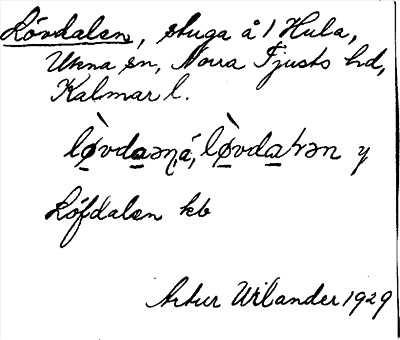 Lövdalen, stuga å 1 Hula,
Ukna sn, Norra Tjusts hd,
Kalmar l.
lø̀vdaəṇ á, lø̀vdaɽən y
Löfdalen kb
Artur Wilander 1929